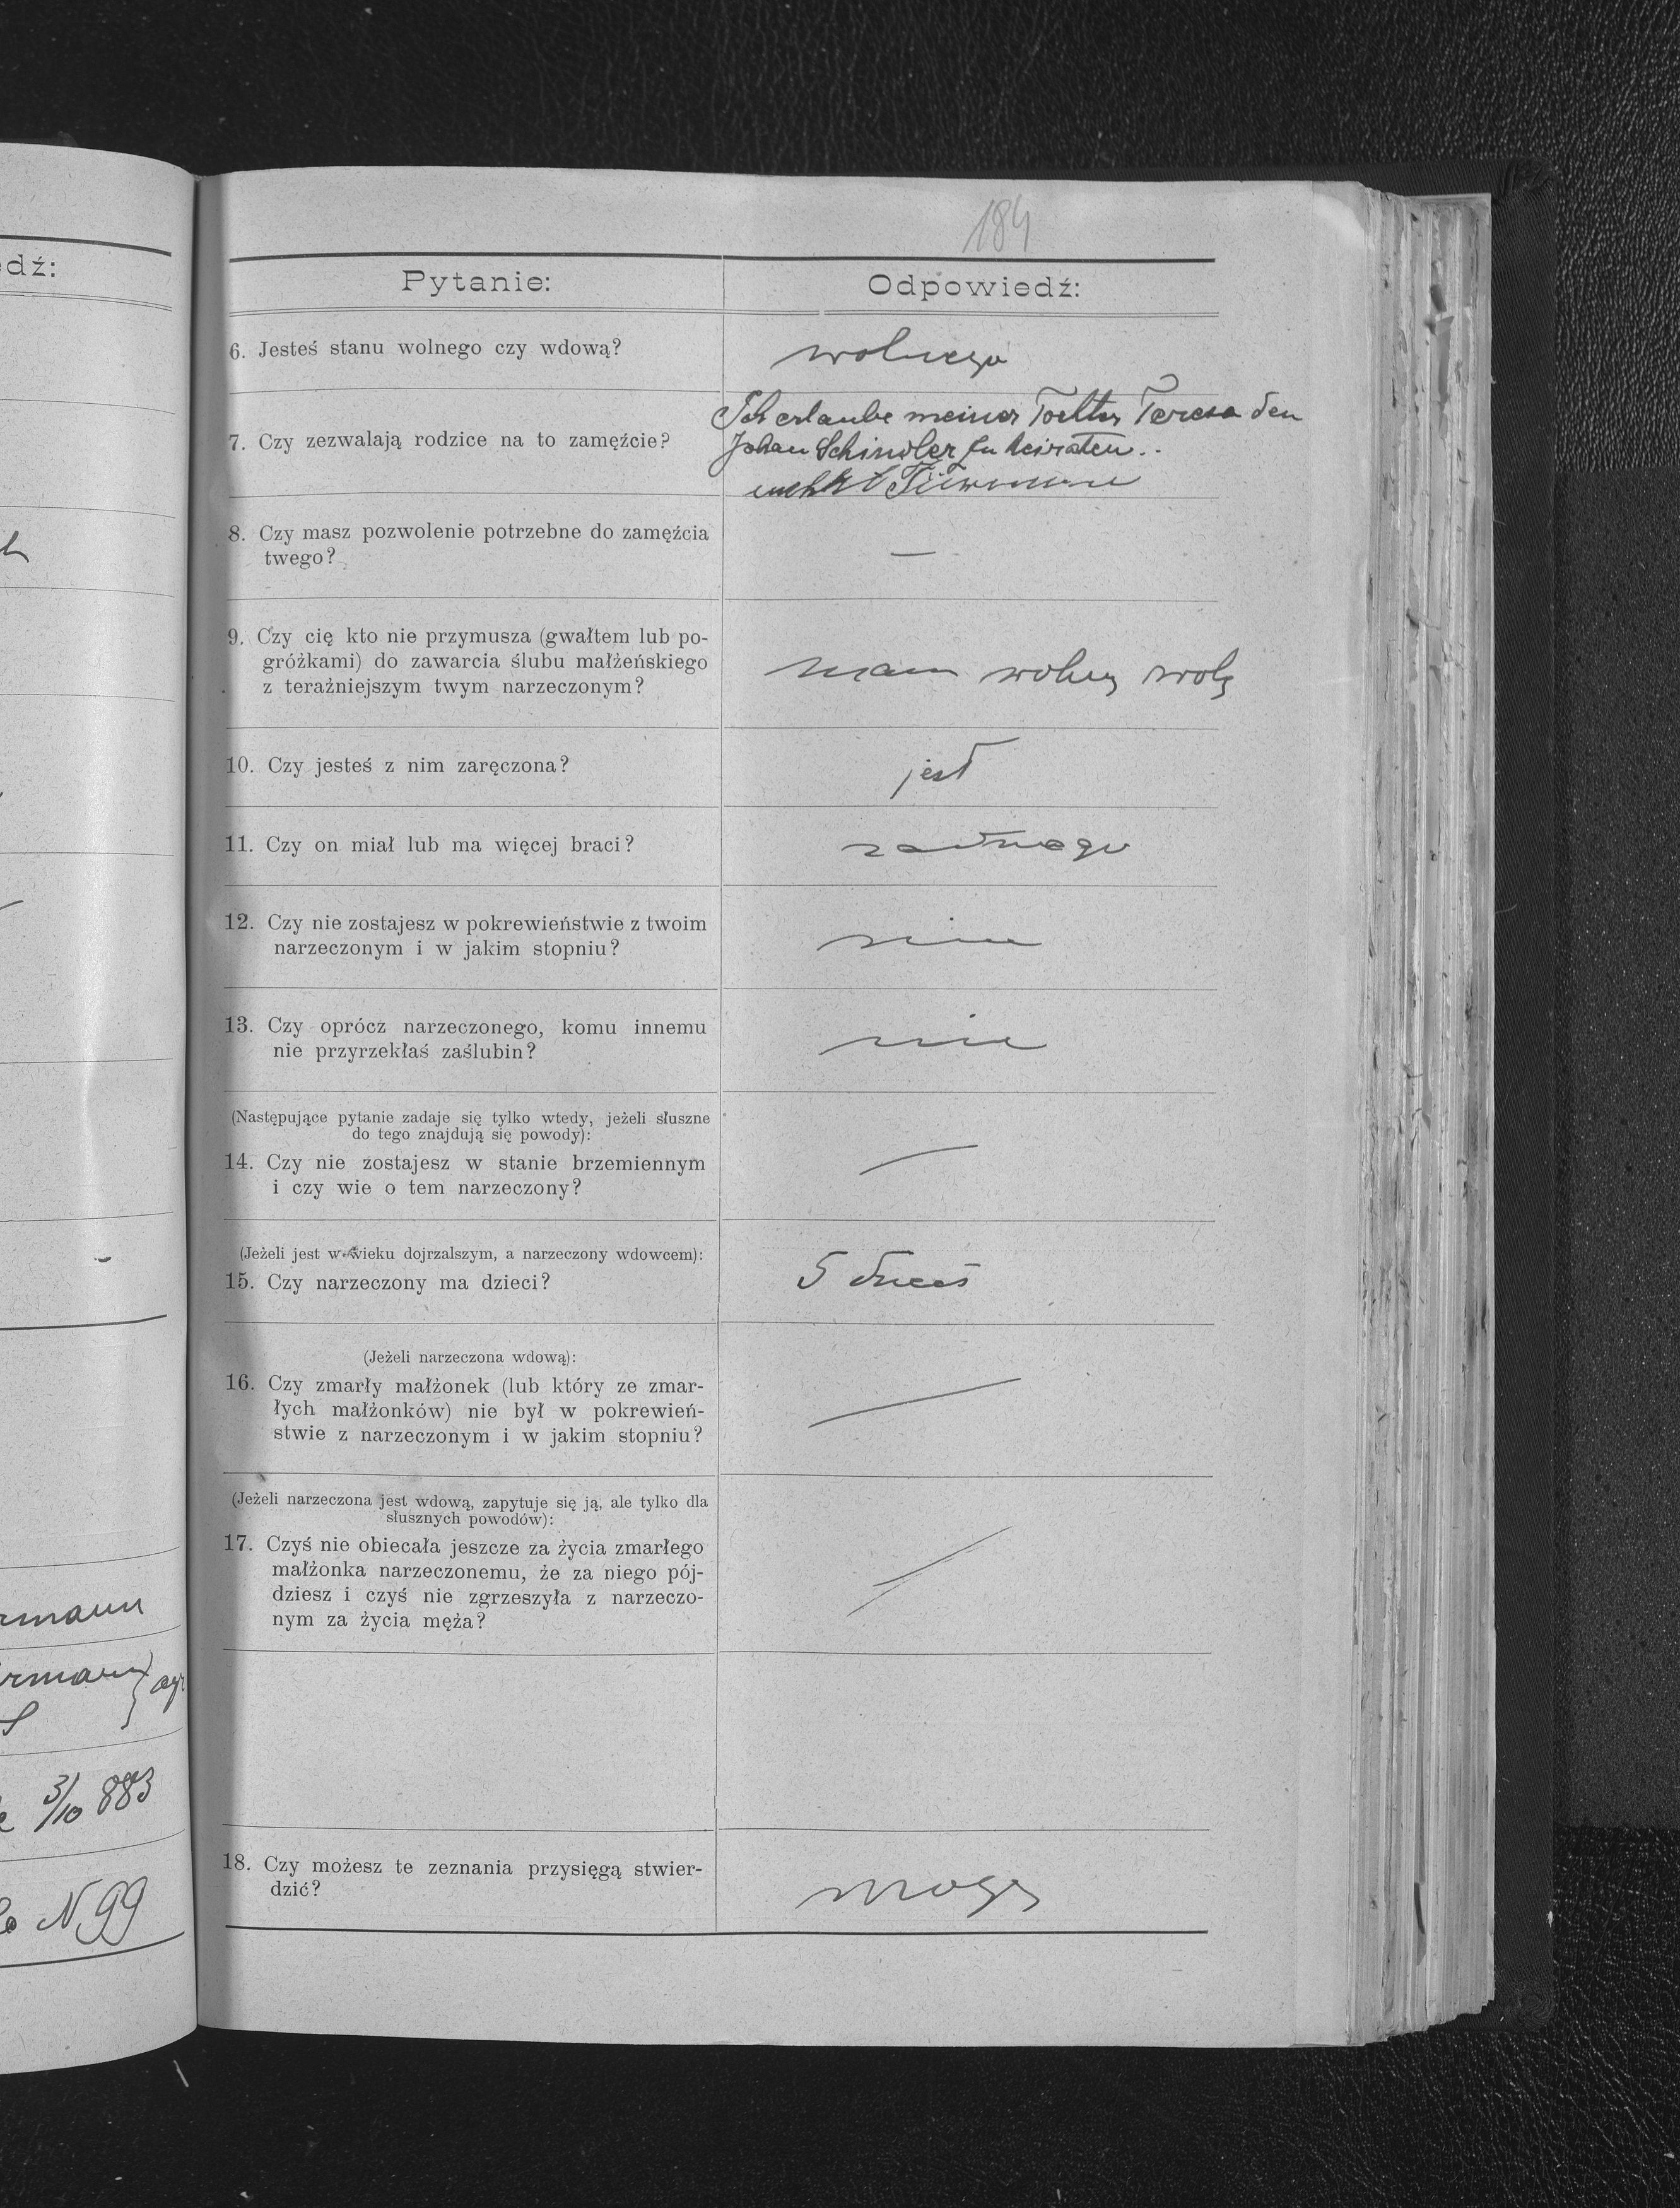 184
edź:
Pytanie:
Odpowiedź:
6. Jesteś stanu wolnego czy wdową?
wolnego
7. Czy zezwalają rodzice na to zamęźcie?
Ich erlaube meiner Tochter Teresa den
Johan Schindler zu heiraten..
8. Czy masz pozwolenie potrzebne do zamęźcia
twego?
—
9. Czy cię kto nie przymusza (gwałtem lub po-
gróżkami) do zawarcia ślubu małżeńskiego
z teraźniejszym twym narzeczonym?
mam wolną wolę
10. Czy jesteś z nim zaręczona?
jest
11. Czy on miał lub ma więcej braci?
żadnego
12. Czy nie zostajesz w pokrewieństwie z twoim
narzeczonym i w jakim stopniu?
nie
13. Czy oprócz narzeczonego, komu innemu
nie przyrzekłaś zaślubin?
nie
(Następujące pytanie zadaje się tylko wtedy, jeżeli słuszne
do tego znajdują się powody):
14. Czy nie zostajesz w stanie brzemiennym
i czy wie o tem narzeczony?
(Jeżeli jest w wieku dojrzalszym, a narzeczony wdowcem):
15. Czy narzeczony ma dzieci?
5 dzieci
(Jeżeli narzeczona wdową):
16. Czy zmarły małżonek (lub który ze zmar-
łych małżonków) nie był w pokrewień-
stwie z narzeczonym i w jakim stopniu?
(Jeżeli narzeczona jest wdową, zapytuje się ją, ale tylko dla
słusznych powodów):
17. Czyś nie obiecała jeszcze za życia zmarłego
małżonka narzeczonemu, że za niego pój-
dziesz i czyś nie zgrzeszyła z narzeczo-
nym za życia męża?
rmann
rmann
3/10 883
18. Czy możesz te zeznania przysięgą stwier-
dzić?
mogę
N 99